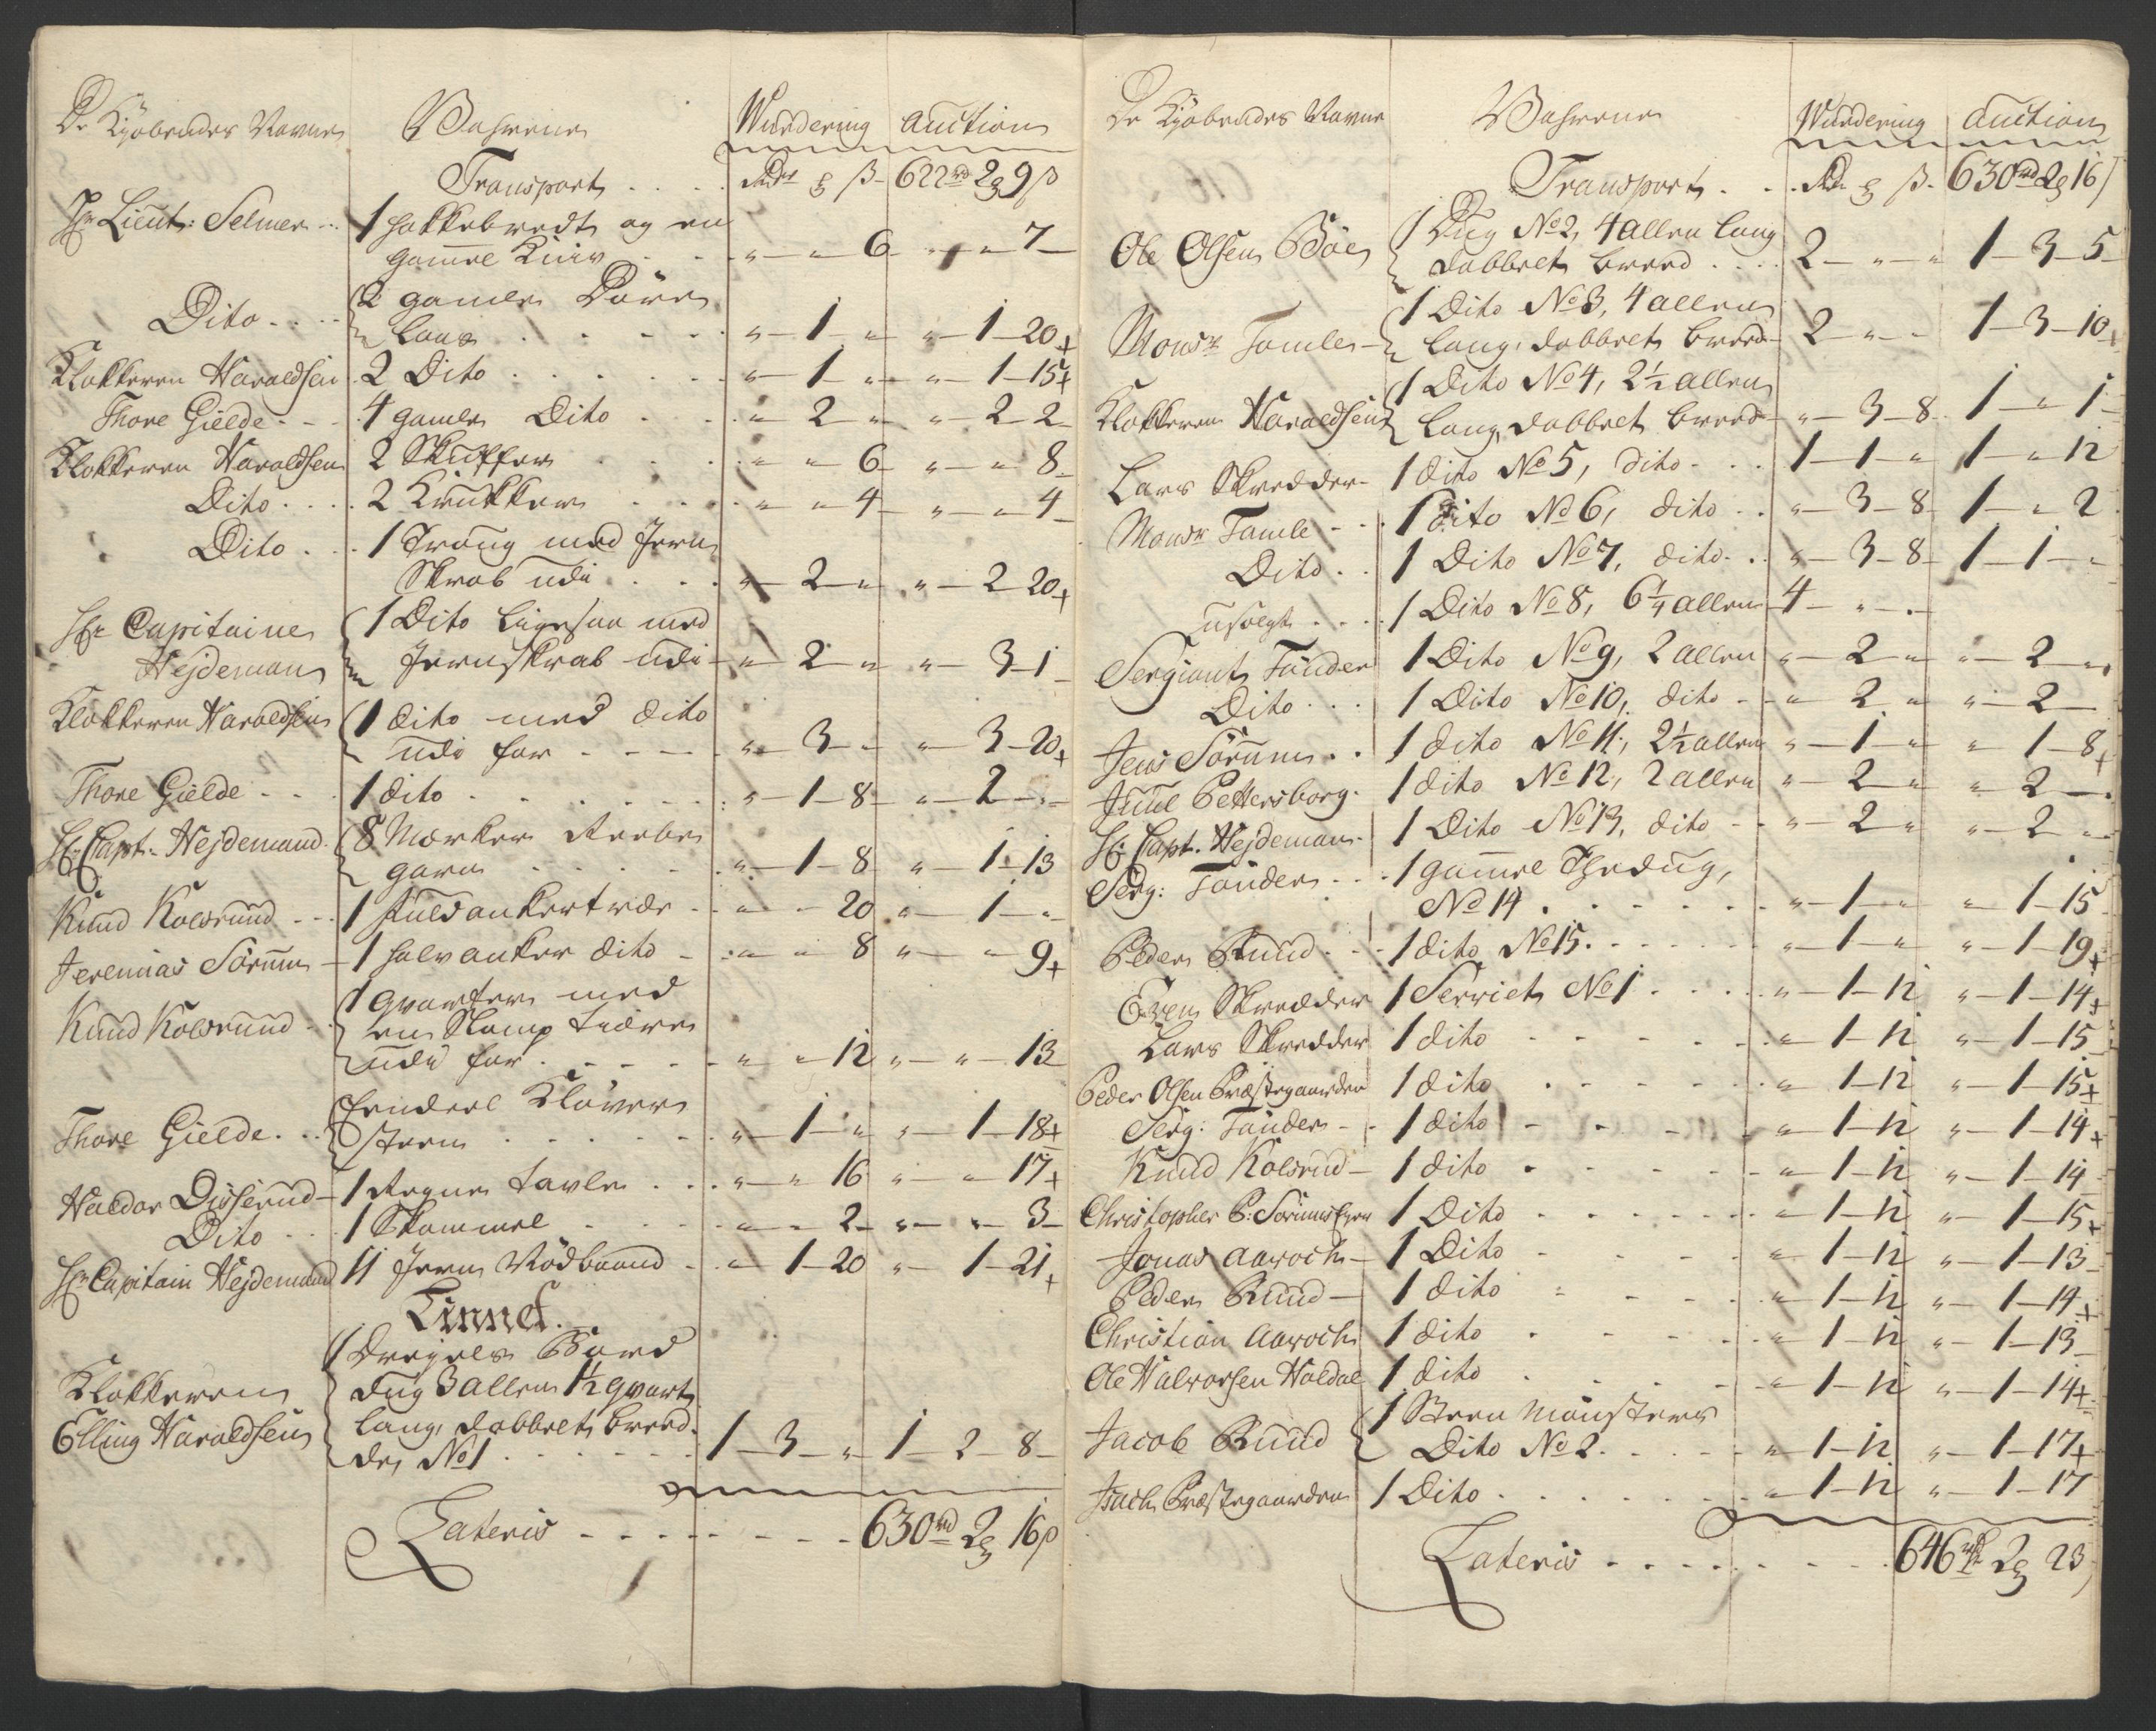 De Kiøbendes Navne Vahrene Wurdering Auction
Transport . . . . Rdr ß 622 rd 2 9 ß
Hr Lieut: Selmer . . 1 hakkebredt og en
gammel Kniv . . " - " 6 " - " 7 -
Dito . . . . 2 gamle Döre
Laas . . . . . " - 1 - " " - 1 - 20 +
Klokkeren Haraldsen . 2 Dito . . . . . . " - 1 - " " - 1 - 15 +
Thore Gielde - - 4 gamle Dito . . . " - 2 - " " - 2 - 2 -
Klokkeren Haraldsen 2 Skuffer . . . . " - " 6 " - " 8 -
Dito . . . . 2 Krukker . . . . " - " 4 - " - " 4 -
Dito . . . 1 Troug med Jern
Skrab udi . . . " - 2 - " " - 2 - 20 +
Hr Capitaine 1 Dito ligesaa med
Hejdeman Jernskrab udi - " - 2 - " " - 3 - 1 -
Klokkeren Haraldsen 1 dito med dito
udi for - - - - " - 3 - " " - 3 - 20 +
Thore Gielde - - 1 dito . . . . . . . " - 1 - 8 - " - 2 - " -
Hr Capt: Hejdemand 8 Mærker Reebe
garn . . . . . " - 1 - 8 " - 1 - 13
Knud Kolsrund - - - 1 fuldankertræe - - " - " 20 " - 1 - " -
Jeremias Sörum - 1 halvanker dito - . " - " 8 " - " 9 +
Knud Kolsrund - - 1 qvarter med
en Skamp tiære
udi for . . . . . " - " 12 " - " 13
Thore Gielde . . . Kløver
. . . . . . " - 1 - " " - 1 - 18 +
Haldor Disserud - 1 Regne tavle . . . " - " 16 " - " 17 +
Dito . . . 1 Skammel . . . . " - " 2 - " - " 3 -
Hr Capitain Hejdemand 11 Jern Nödbaand - . " - 1 - 20 " - 1 - 21 +
Linnet.
1 Dreyels Bord
Klokkeren dug 3 allen 1 1/2 qvart
Elling Haraldsen lang, dobbelt breed-
de, No 1 . . . . . . . 1 - 3 - " 1 - 2 - 8 -
Lateris - - - - - - - - 630 rd 2 16 ß
De Kjøbendes Navne Vahrene Wurdering Auction
Transport . . . Rdr ß 630 rd 2 16 ß
Ole Olsen Böe 1 Dug No 2, 4 allen lang
dobbelt breed . . . . 2 - " - " 1 - 3 - 5 -
Monsr Tomle - 1 Dito No 3, 4 allen
lang, dobbelt breed - 2 - " - " 1 - 3 - 10 +
Klokkeren Haraldsen 1 Dito No 4, 2 1/2 allen
lang, dobbelt breed - " - 3 - 8 1 - " 1 -
Lars Skredder - 1 dito No 5, dito - . . . 1 - 1 - " 1 - " 12
Monsr Tamle - - . 1 Dito No 6, dito . . " - 3 - 8 1 - " 2
Dito . . 1 Dito No 7, dito . . " - 3 - 8 1 - 1 - "
usolgt . . . . 1 Dito No 8, 6 1/4 allen 4 - " - "
Sergiant Tönder 1 Dito No 9, 2 allen " - 2 - " " - 2 - "
Dito . . . 1 Dito No 10, dito - - " - 2 - " " - 2 -
Jens Sörum . . 1 dito No 11, 2 1/2 allen " - 1 - " " 1 - 8 +
Juul Pettersborg . 1 dito No 12, 2 allen " - 2 - " " 2 -
Hr Capt. Hejdeman - 1 Dito No 13, dito - - " - 2 - " " - 2 - "
Serg: Tönder . . . 1 gammel Thedug,
No 14 . . . . . . . " - 1 - " " 1 - 15
Peder Ruud . . . 1 dito No 15 . . . . . . " - 1 - " " - 1 - 19 +
Even Skredder 1 Serviet No 1 . . . . " - 1 - 12 " - 1 - 14 +
Lars Skredder 1 dito . . . . . . " - 1 - 12 " - 1 - 15
Peder Olsen Præstegaarden 1 dito . . . . . . " 1 - 12 " - 1 - 15 +
Serg: Tönder - - 1 dito - - - - - " - 1 - 12 " - 1 - 14 +
Knud Kolsrud - 1 dito . . . . . " - 1 - 12 " - 1 - 14
Christopher P: Sörumseyer 1 Dito . . . . . . " - 1 - 12 " - 1 - 15 +
Jonas Aaroch - 1 Dito . . . . . " - 1 - 12 " - 1 - 13 -
Peder Ruud - 1 dito . . . . . " - 1 - 12 " - 1 - 14 +
Christian Aaroch 1 dito . . . . . " - 1 - 12 " - 1 - 13 -
Ole Halvorsen Holdal 1 dito . . . . . " - 1 - 12 " - 1 - 14 +
Jacob Ruud 1 Steen Mönsters
Dito No 2 . . . . . " - 1 - 12 " - 1 - 17 +
Isach Præstegaarden 1 Dito . . . . . . . " - 1 - 12 " - 1 - 17
Lateris . . . . . . . . 646 rd 2 23